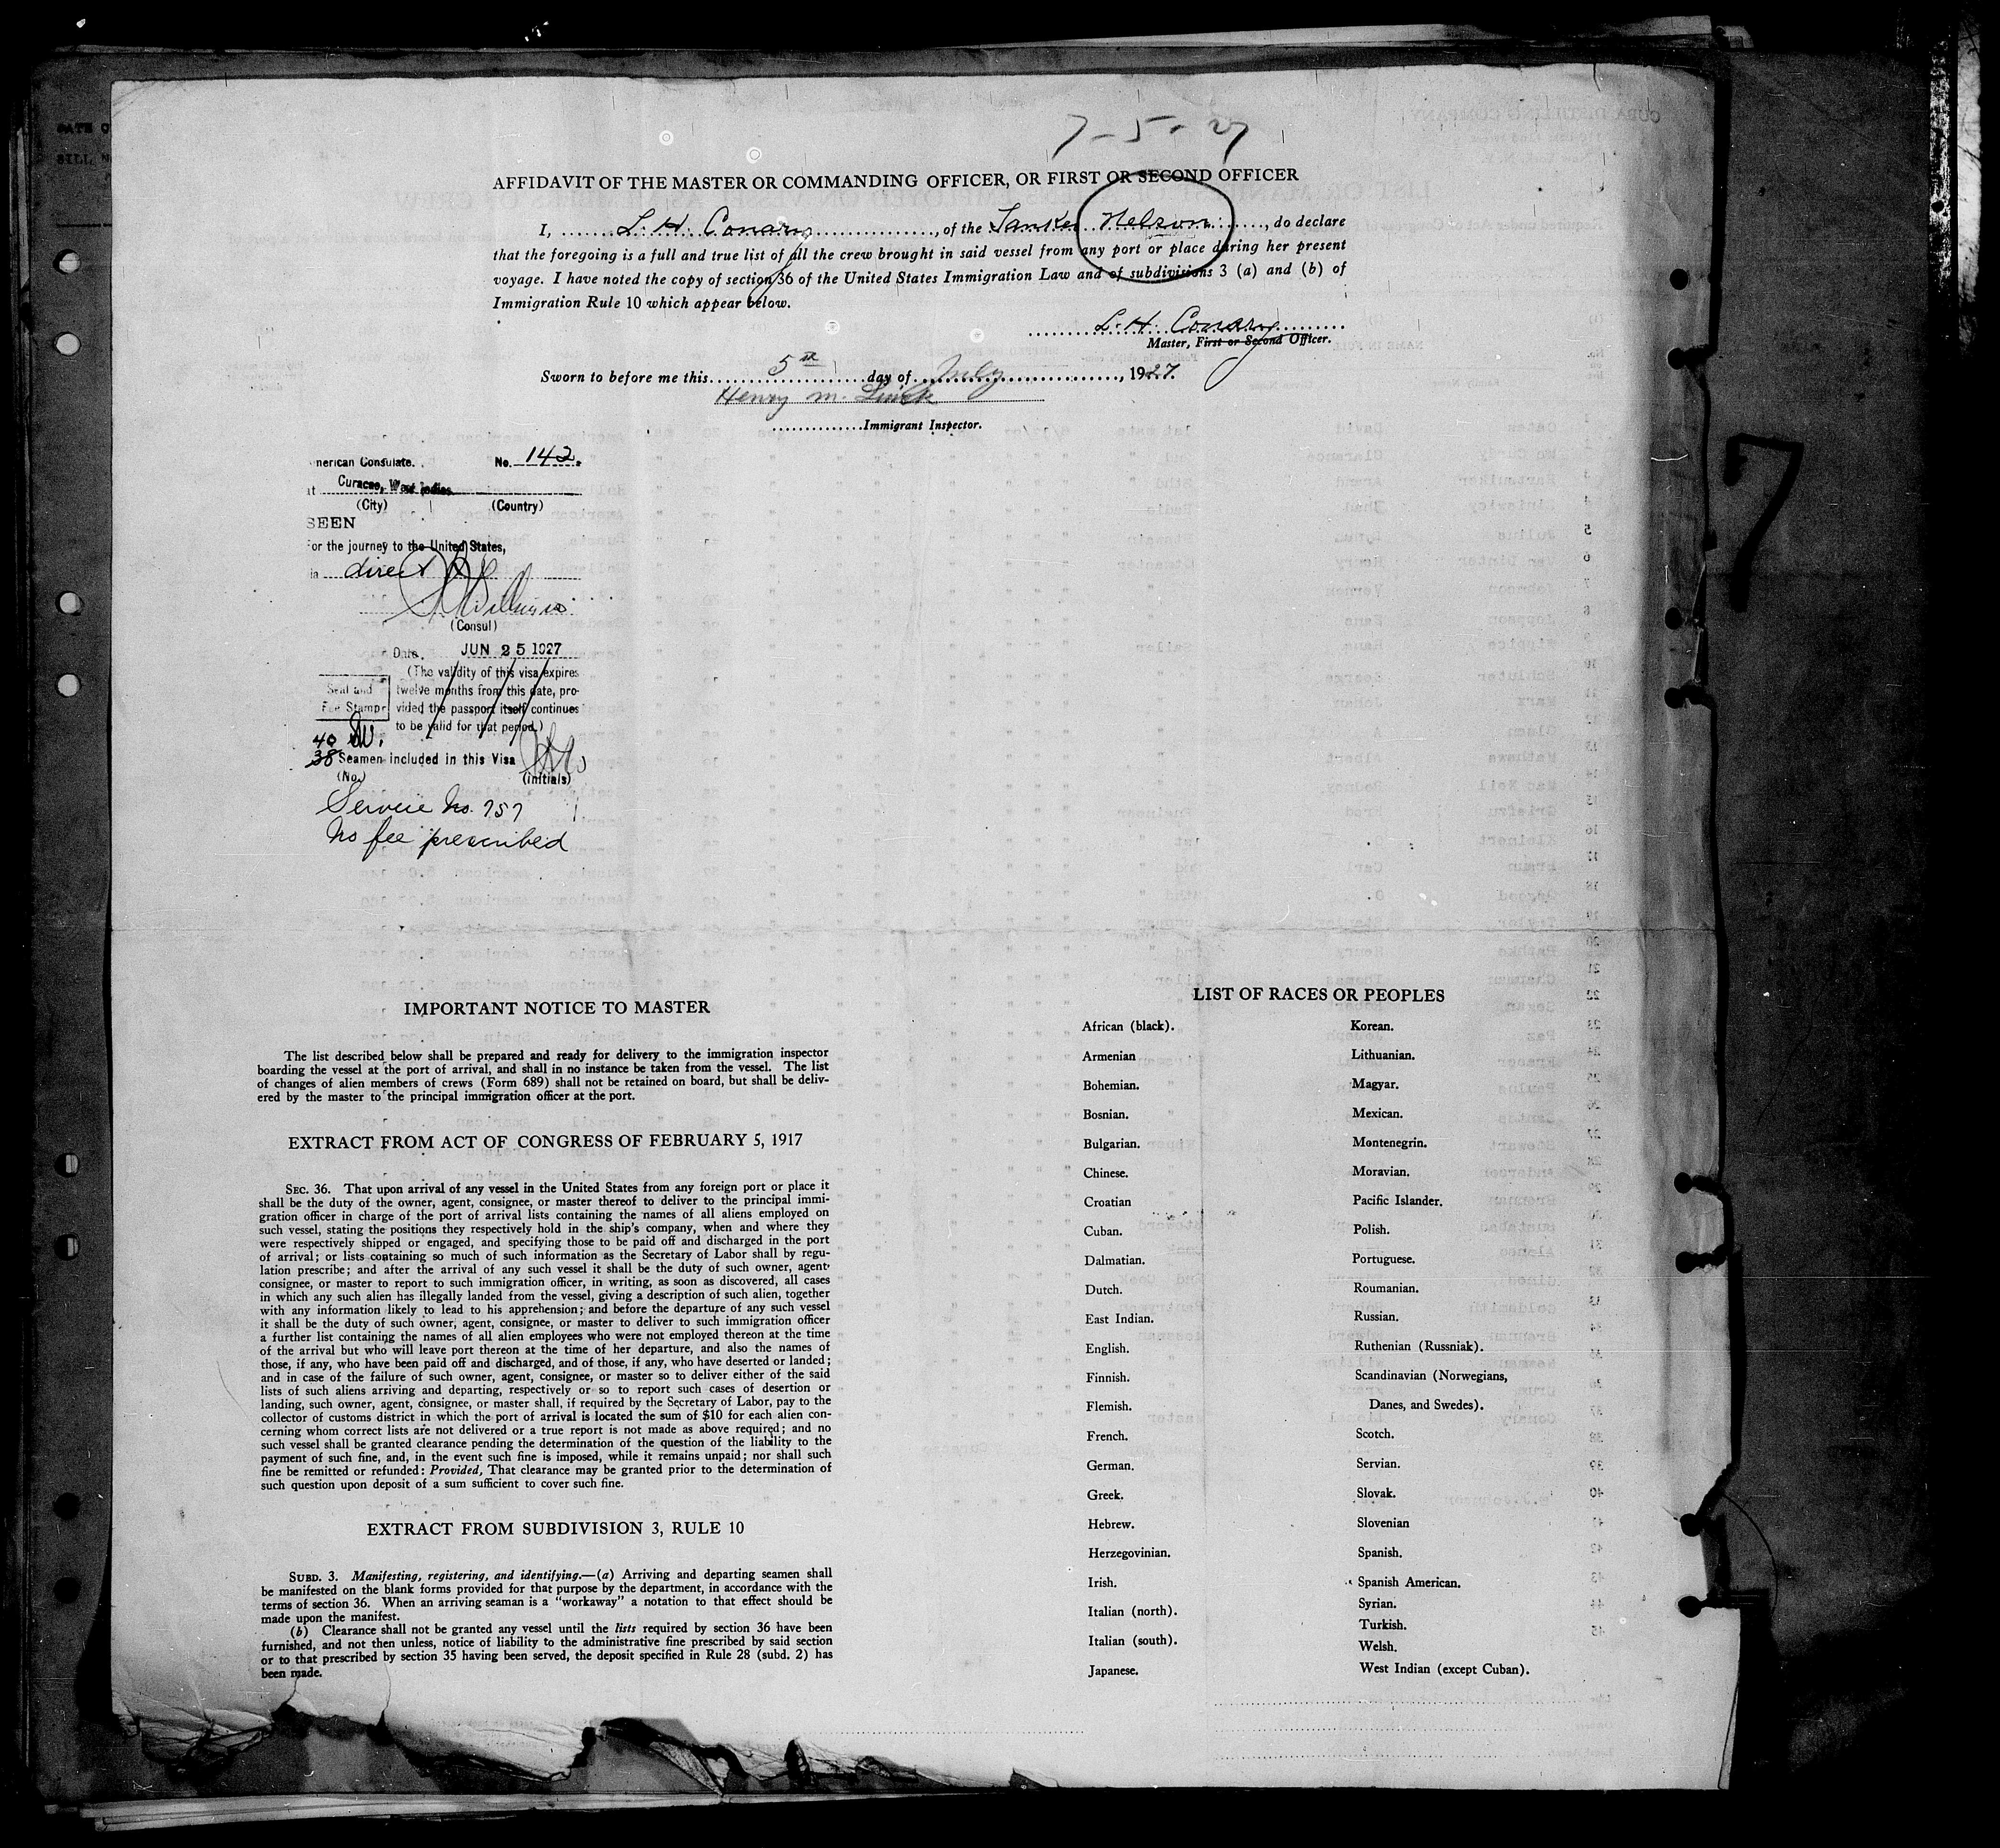 7-5-27
AFFIDAVIT OF THE MASTER OR COMMANDING OFFICER, OR FIRST OR SECOND OFFICER
I, L. H. Conary, of the Tanker Nelson, do declare
that the foregoing is a full and true list of all the crew brought in said vessel from any port or place during her present
voyage. I have noted the copy of section 36 of the United States Immigration Law and of subdivisions 3 (a) and (b) of
Immigration Rule 10 which appear below.
L. H. Conary
Master, First or Second Officer.
Sworn to before me this 5th day of July, 1927.
Henry M.
Immigrant Inspector.
merican Consulate. No. 142.
at Curacao, West Indies
(City) (Country)
SEEN
For the journey to the United States,
ia direct
(Consul)
Date. JUN 25 1927
(The validity of this visa expires
Seal and twelve months from this date, pro-
Fee Stamp vided the passport itself continues
to be valid for that period.)
40
38 Seamen included in this Visa
(No.) (initials)
Service No. 757
No fee prescribed
7
IMPORTANT NOTICE TO MASTER
The list described below shall be prepared and ready for delivery to the immigration inspector
boarding the vessel at the port of arrival, and shall in no instance be taken from the vessel. The list
of changes of alien members of crews (Form 689) shall not be retained on board, but shall be deliv-
ered by the master to the principal immigration officer at the port.
EXTRACT FROM ACT OF CONGRESS OF FEBRUARY 5, 1917
SEC. 36. That upon arrival of any vessel in the United States from any foreign port or place it
shall be the duty of the owner, agent, consignee, or master thereof to deliver to the principal immi-
gration officer in charge of the port of arrival lists containing the names of all aliens employed on
such vessel, stating the positions they respectively hold in the ship's company, when and where they
were respectively shipped or engaged, and specifying those to be paid off and discharged in the port
of arrival; or lists containing so much of such information as the Secretary of Labor shall by regu-
lation prescribe; and after the arrival of any such vessel it shall be the duty of such owner, agent,
consignee, or master to report to such immigration officer, in writing, as soon as discovered, all cases
in which any such alien has illegally landed from the vessel, giving a description of such alien, together
with any information likely to lead to his apprehension; and before the departure of any such vessel
it shall be the duty of such owner, agent, consignee, or master to deliver to such immigration officer
a further list containing the names of all alien employees who were not employed thereon at the time
of the arrival but who will leave port thereon at the time of her departure, and also the names of
those, if any, who have been paid off and discharged, and of those, if any, who have deserted or landed;
and in case of the failure of such owner, agent, consignee, or master so to deliver either of the said
lists of such aliens arriving and departing, respectively or so to report such cases of desertion or
landing, such owner, agent, consignee, or master shall, if required by the Secretary of Labor, pay to the
collector of customs district in which the port of arrival is located the sum of $10 for each alien con-
cerning whom correct lists are not delivered or a true report is not made as above required; and no
such vessel shall be granted clearance pending the determination of the question of the liability to the
payment of such fine, and, in the event such fine is imposed, while it remains unpaid; nor shall such
fine be remitted or refunded: Provided, That clearance may be granted prior to the determination of
such question upon deposit of a sum sufficient to cover such fine.
EXTRACT FROM SUBDIVISION 3, RULE 10
SUBD. 3. Manifesting, registering, and identifying.—(a) Arriving and departing seamen shall
be manifested on the blank forms provided for that purpose by the department, in accordance with the
terms of section 36. When an arriving seaman is a "workaway" a notation to that effect should be
made upon the manifest.
(b) Clearance shall not be granted any vessel until the lists required by section 36 have been
furnished, and not then unless, notice of liability to the administrative fine prescribed by said section
or to that prescribed by section 35 having been served, the deposit specified in Rule 28 (subd. 2) has
been made.
LIST OF RACES OR PEOPLES
African (black).
Armenian
Bohemian.
Bosnian.
Bulgarian.
Chinese.
Croatian
Cuban.
Dalmatian.
Dutch.
East Indian.
English.
Finnish.
Flemish.
French.
German.
Greek.
Hebrew.
Herzegovinian.
Irish.
Italian (north).
Italian (south).
Japanese.
Korean.
Lithuanian.
Magyar.
Mexican.
Montenegrin.
Moravian.
Pacific Islander.
Polish.
Portuguese.
Roumanian.
Russian.
Ruthenian (Russniak).
Scandinavian (Norwegians,
Danes, and Swedes).
Scotch.
Servian.
Slovak.
Slovenian
Spanish.
Spanish American.
Syrian.
Turkish.
Welsh.
West Indian (except Cuban).